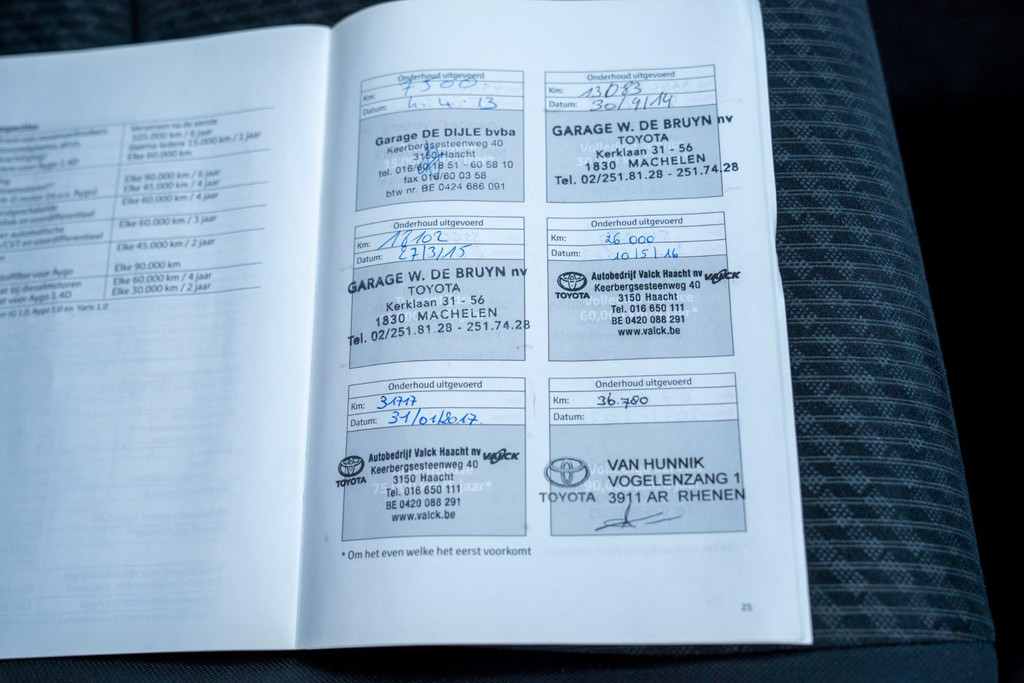 Verversen na de eerste
105.000 km / 5 jaar
daarna iedere 15.000 km / 1 jaar
Elke 60.000 km
Elke 90.000 km / 6 jaar
Elke 45.000 km / 4 jaar
Elke 60.000 km / 4 jaar
Elke 60.000 km / 3 jaar
Elke 45.000 km / 2 jaar
Elke 90.000 km
Elke 60.000 km / 4 jaar
Elke 30.000 km / 2 jaar
Onderhoud uitgevoerd
Km: 7500
Datum: 4.4.13
Garage DE DIJLE bvba
Keerbergsesteenweg 40
3150 Haacht
tel. 016/60 18 51 - 60 58 10
fax 016/60 03 58
btw nr. BE 0424 686 091
Onderhoud uitgevoerd
Km: 13083
Datum: 30/4/14
GARAGE W. DE BRUYN nv
TOYOTA
Kerklaan 31 - 56
1830 MACHELEN
Tel. 02/251.81.28 - 251.74.28
Onderhoud uitgevoerd
Km: 18102
Datum: 27/3/15
GARAGE W. DE BRUYN nv
TOYOTA
Kerklaan 31 - 56
1830 MACHELEN
Tel. 02/251.81.28 - 251.74.28
Onderhoud uitgevoerd
Km: 26 000
Datum: 10/5/16
TOYOTA
Autobedrijf Valck Haacht nv VALCK
Keerbergsesteenweg 40
3150 Haacht
Tel. 016 650 111
BE 0420 088 291
www.valck.be
Onderhoud uitgevoerd
Km: 31717
Datum: 31/01/2017
TOYOTA
Autobedrijf Valck Haacht nv VALCK
Keerbergsesteenweg 40
3150 Haacht
Tel. 016 650 111
BE 0420 088 291
www.valck.be
Onderhoud uitgevoerd
Km: 36.780
Datum:
TOYOTA
VAN HUNNIK
VOGELENZANG 1
3911 AR RHENEN
* Om het even welke het eerst voorkomt
25